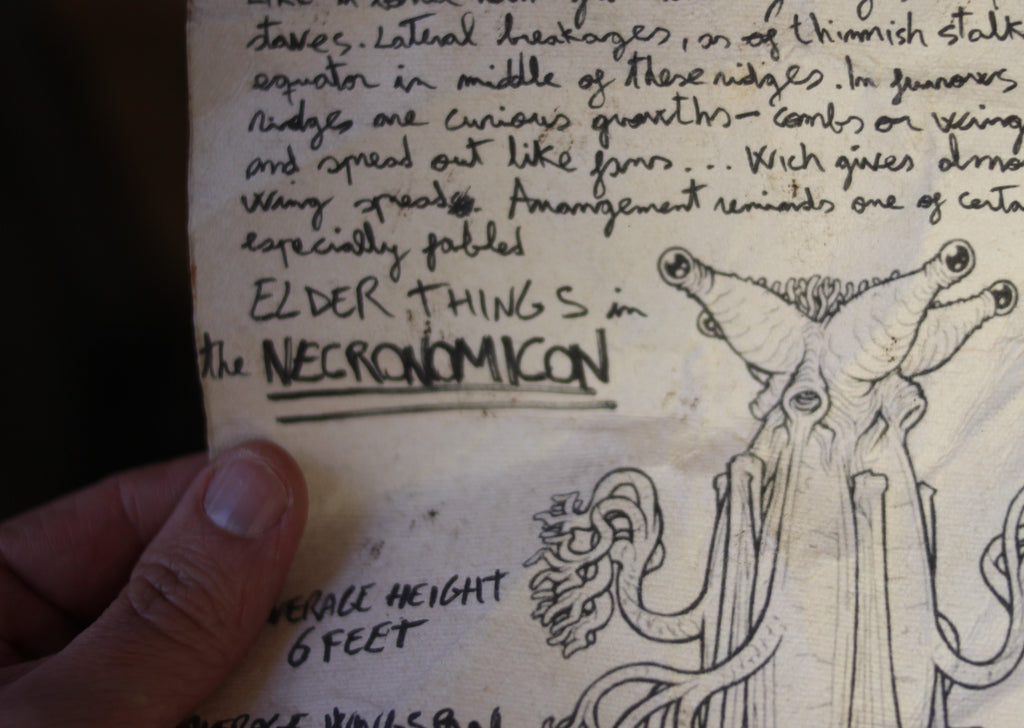 staves. Lateral breakages, as of thinnish stalk
equator in middle of these ridges. In furrows
ridges are curious growths - combs or wing
and spread out like fans... Wich gives almo
wing spreads. Arrangement reminds one of certa
especially fabled
ELDER THINGS in
the NECRONOMICON
VERAGE HEIGHT
6 FEET